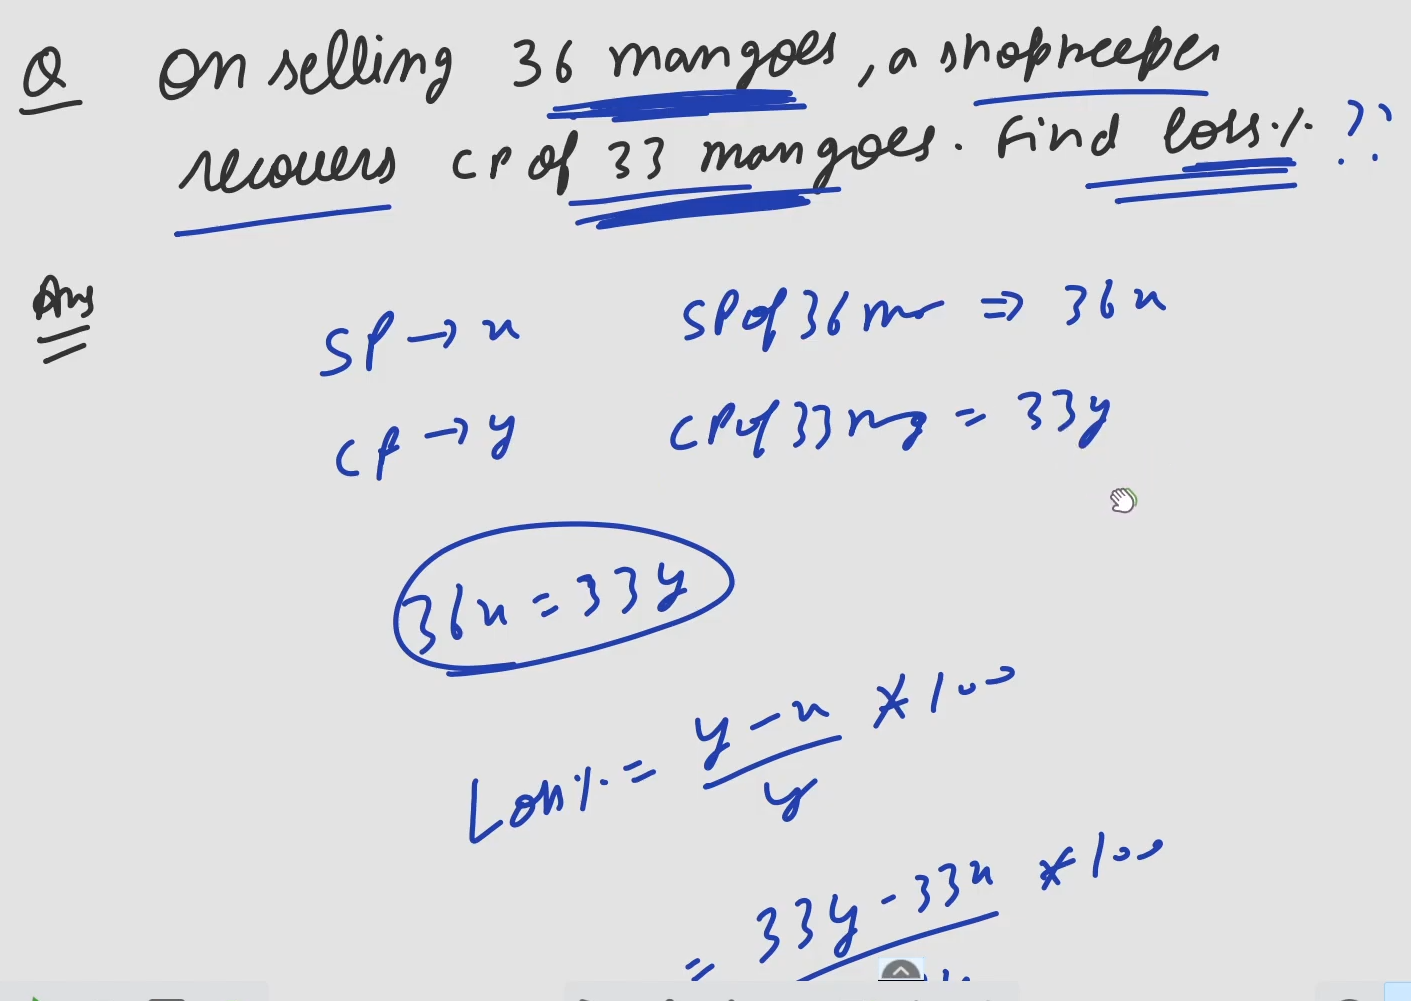 Q On selling 36 mangoes, a shopkeeper
recovers CP of 33 mangoes. Find loss % ??
Ans
SP → x SP of 36 m ⇒ 36x
CP → y CP of 33 mg = 33y
36x = 33y
Loss % = y - x / y * 100
= 33y - 33x * 100